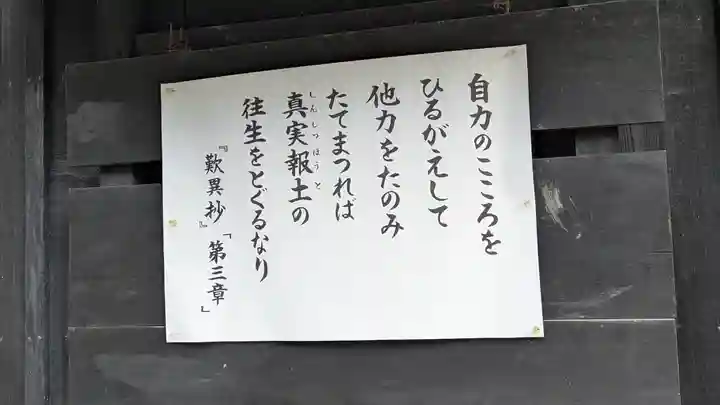 自力のこころを
ひるがえして
他力をたのみ
たてまつれば
真実報土の
しんじつほうど
往生をとぐるなり
『歎異抄』「第三章」